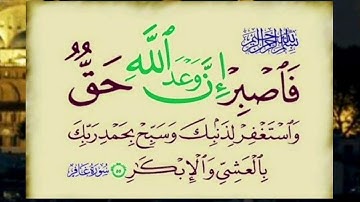 بسم الله الرحمن الرحيم
فَٱصْبِرْ إِنَّ وَعْدَ ٱللَّهِ حَقٌّ
وَٱسْتَغْفِرْ لِذَنۢبِكَ وَسَبِّحْ بِحَمْدِ رَبِّكَ
بِٱلْعَشِيِّ وَٱلْإِبْكَـٰرِ ٥٥ سُورَةُ غَافِر